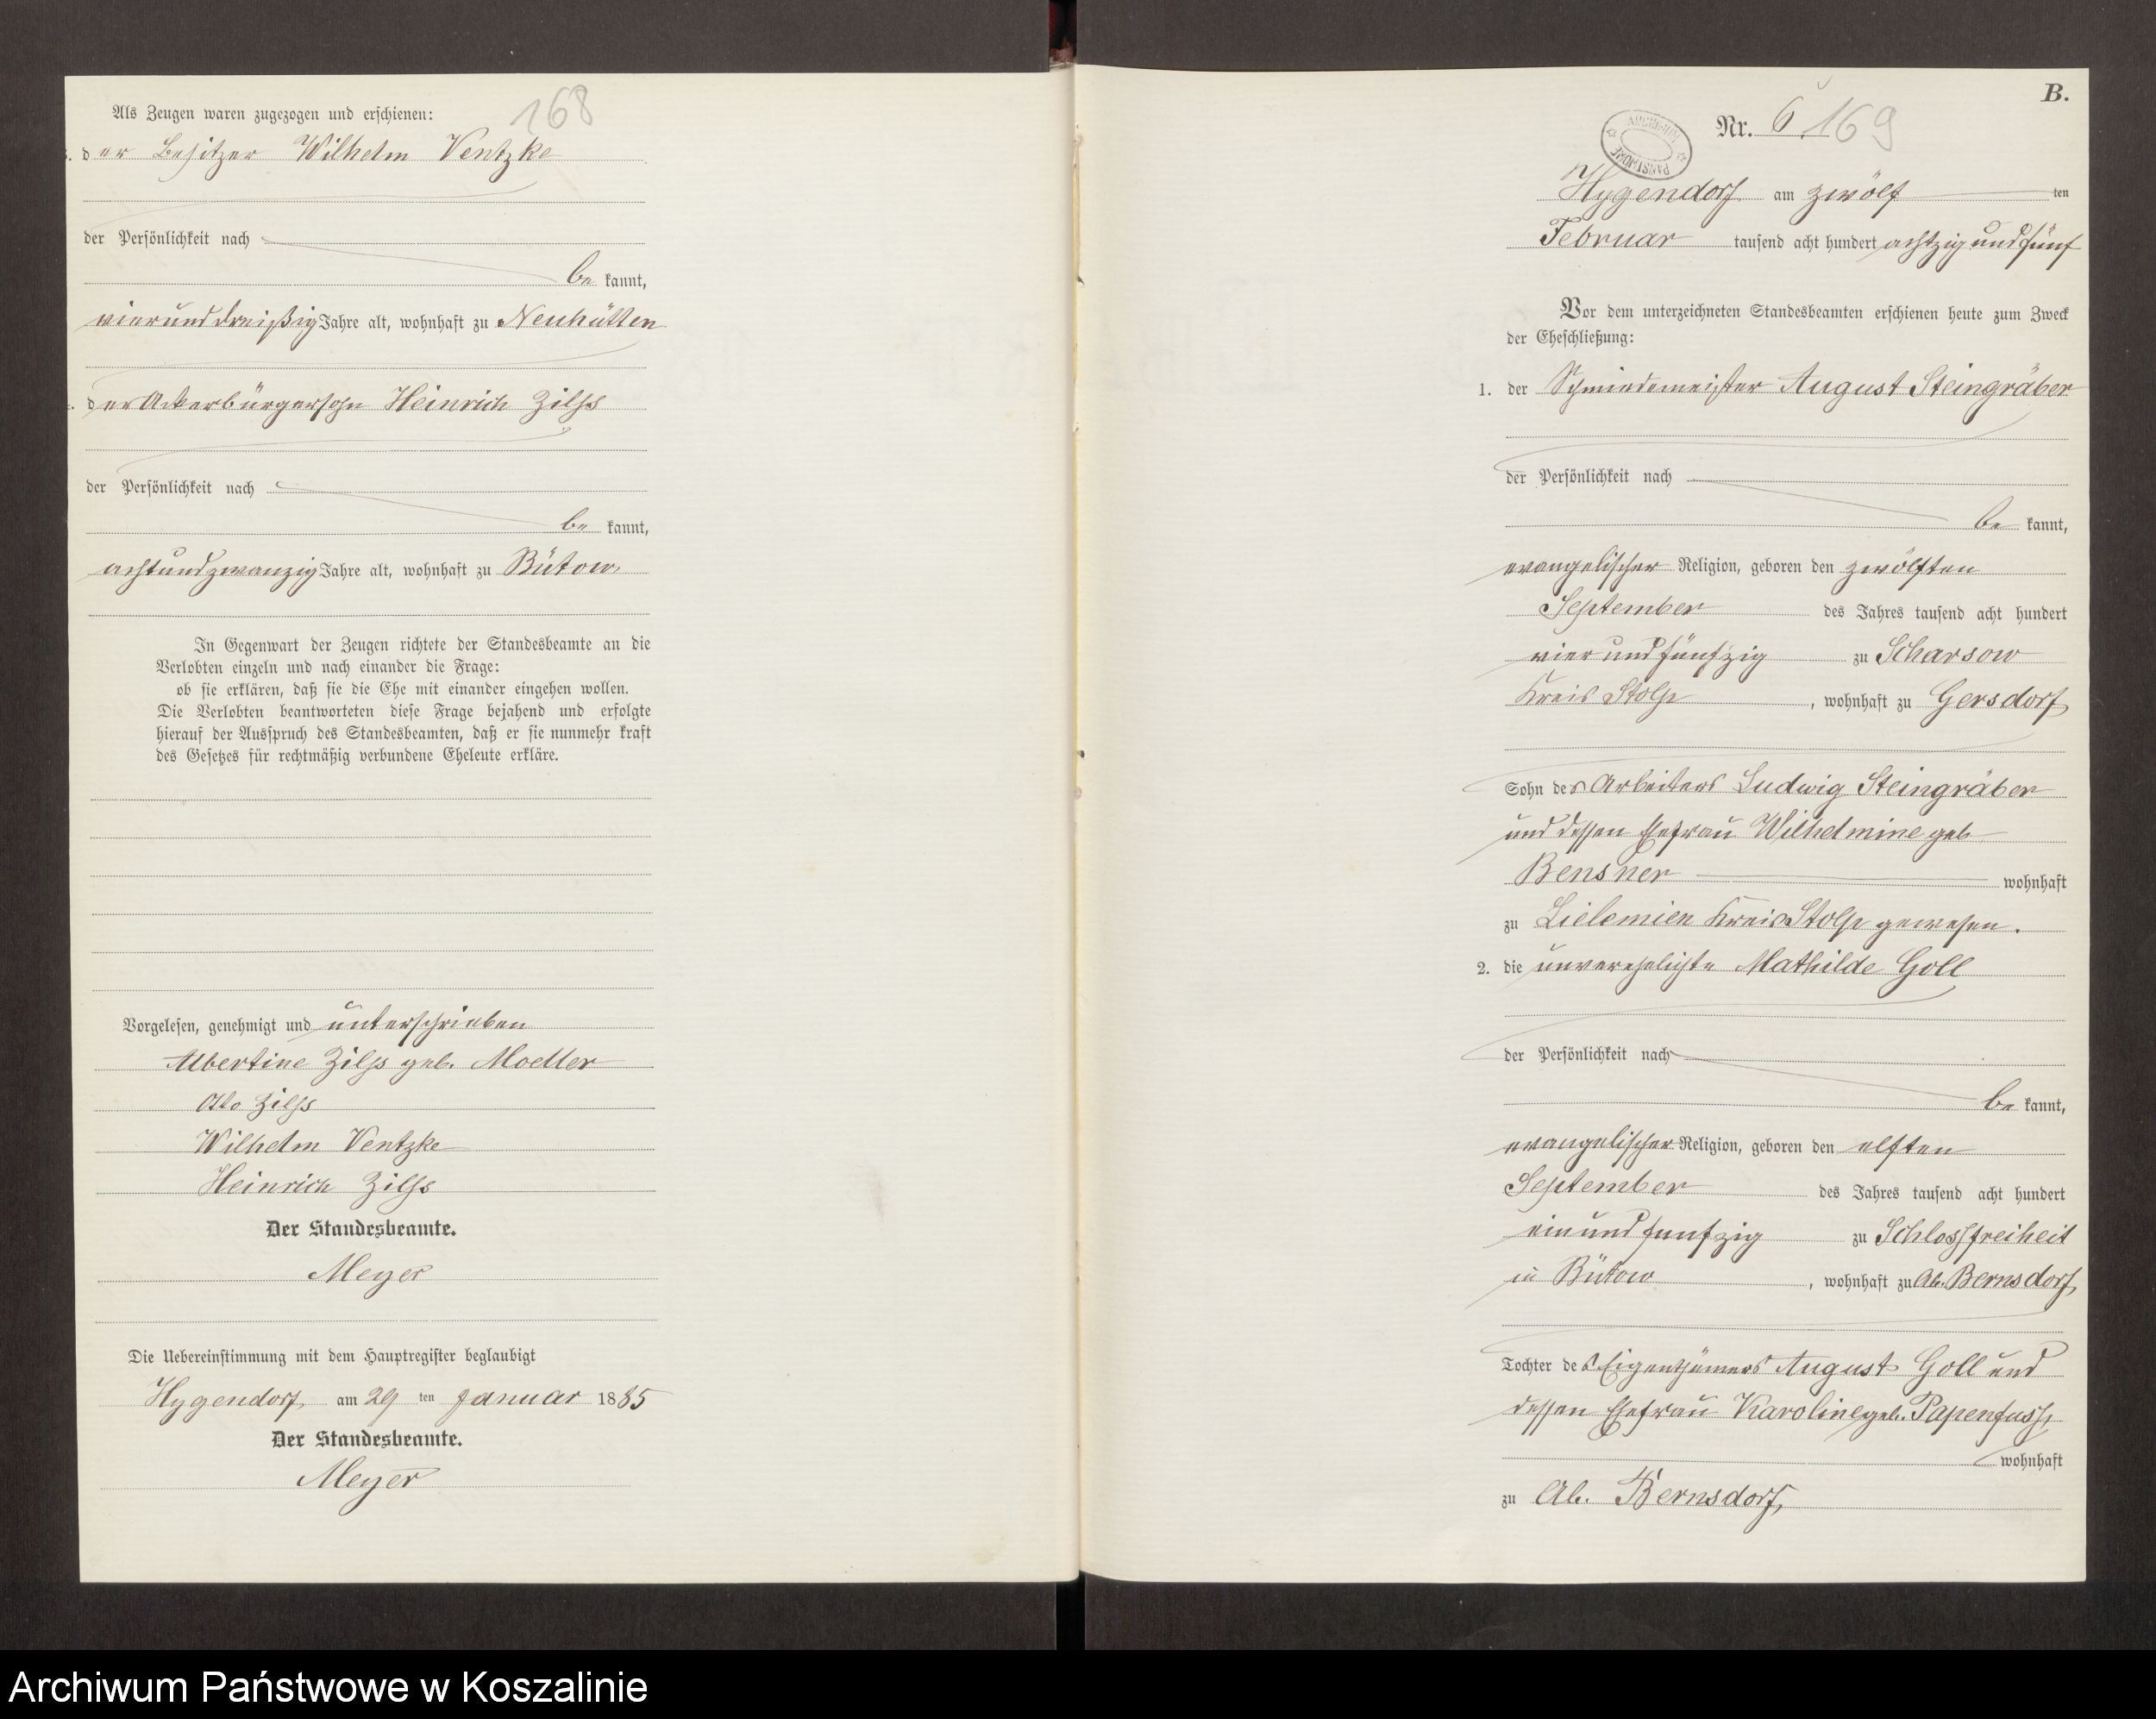 168
Als Zeugen waren zugezogen und erschienen:
der Besitzer Wilhelm Ventzke
der Persönlichkeit nach
be kannt,
vierunddreißig Jahre alt, wohnhaft zu Neuhütten
der Ackerbürgersohn Heinrich Zilss
der Persönlichkeit nach
be kannt,
achtundzwanzig Jahre alt, wohnhaft zu Bütow
In Gegenwart der Zeugen richtete der Standesbeamte an die
Verlobten einzeln und nach einander die Frage:
ob sie erklären, daß sie die Ehe mit einander eingehen wollen.
Die Verlobten beantworteten diese Frage bejahend und erfolgte
hierauf der Ausspruch des Standesbeamten, daß er sie nunmehr kraft
des Gesetzes für rechtmäßig verbundene Eheleute erkläre.
Vorgelesen, genehmigt und unterschrieben
Albertine Zilss geb. Moeller
Otto Zilss
Wilhelm Ventzke
Heinrich Zilss
Der Standesbeamte.
Meyer
Die Uebereinstimmung mit dem Hauptregister beglaubigt
Hygendorf, am 29 ten Januar 1885
Der Standesbeamte.
Meyer
B.
Nr. 6 169
Hygendorf am zwölf ten
Februar tausend acht hundert achtzig und fünf
Vor dem unterzeichneten Standesbeamten erschienen heute zum Zweck
der Eheschließung:
1. der Schmiedemeister August Steingräber
der Persönlichkeit nach
be kannt,
evangelischer Religion, geboren den zwölften
September des Jahres tausend acht hundert
vier und fünfzig zu Scharsow
Kreis Stolp, wohnhaft zu Gersdorf
Sohn des Arbeiters Ludwig Steingräber
und dessen Ehefrau Wilhelmine geb
Bensner wohnhaft
zu Kreis Stolp gewesen.
2. die unverehelichte Mathilde Goll
der Persönlichkeit nach
be kannt,
evangelischer Religion, geboren den elften
September des Jahres tausend acht hundert
ein und funfzig zu Schlossfreiheit
in Bütow, wohnhaft zu Ab. Bernsdorf,
Tochter des Eigenthümers August Goll und
dessen Ehefrau Karoline geb. Papenfuss,
wohnhaft
zu Ab. Bernsdorf,
Archiwum Państwowe w Koszalinie